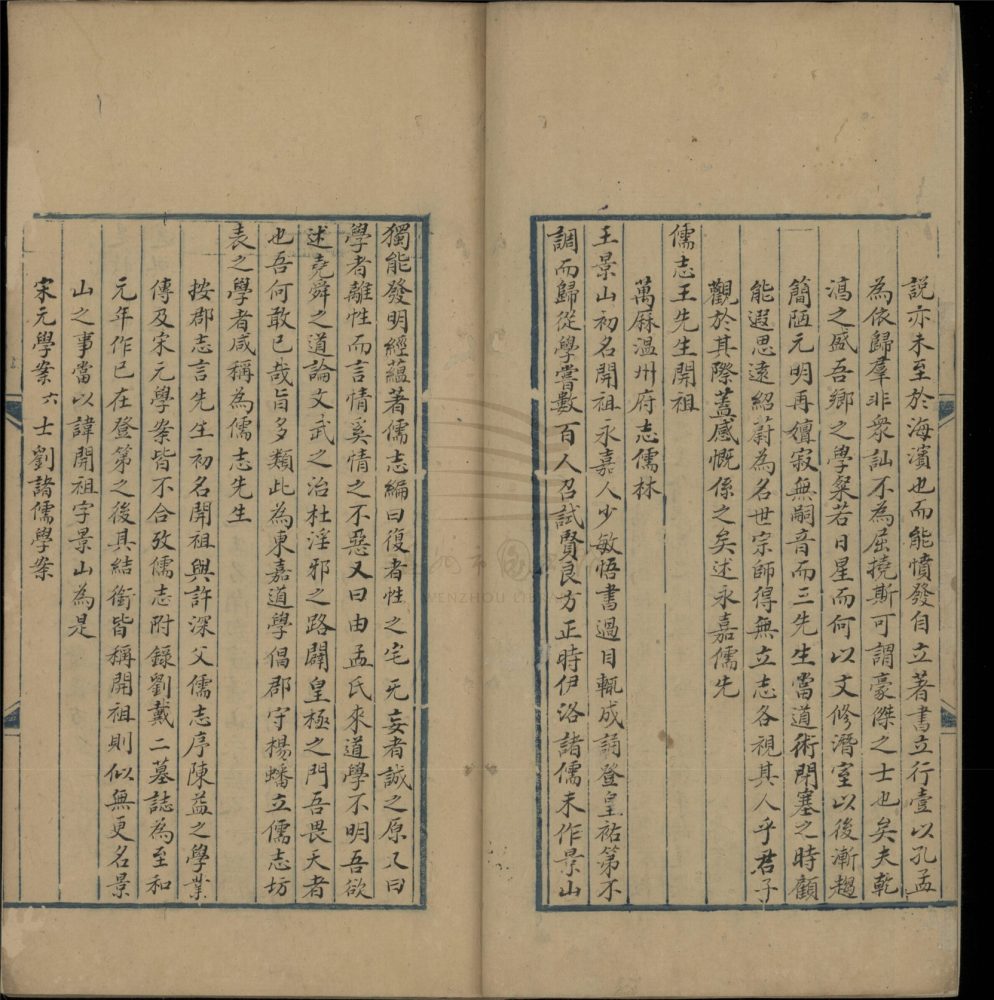 説亦未至於海濱也而能憤發自立著書立行壹以孔孟
為依歸羣非衆訕不為屈撓斯可謂豪傑之士也矣夫乾
淳之盛吾鄉之學粲若日星而何以文修潛室以後漸趨
簡陋元明再嬗寂無嗣音而三先生當道術閉塞之時顧
能遐思遠紹蔚為名世宗師得無立志各視其人乎君子
觀於其際蓋感慨係之矣述永嘉儒先
萬厤溫州府志儒林
儒志王先生開祖
王景山初名開祖永嘉人少敏悟書過目輒成誦登皇祐第不
調而歸從學嘗數百人召試賢良方正時伊洛諸儒未作景山
獨能發明經蘊著儒志編曰復者性之宅无妄者誠之原又曰
學者離性而言情奚情之不惡又曰由孟氏來道學不明吾欲
述堯舜之道論文武之治杜淫邪之路闢皇極之門吾畏天者
也吾何敢已哉旨多類此為東嘉道學倡郡守楊蟠立儒志坊
表之學者咸稱為儒志先生
按郡志言先生初名開祖與許深父儒志序陳益之學業
傳及宋元學案皆不合攷儒志附錄劉戴二墓誌為至和
元年作已在登第之後其結銜皆稱開祖則似無更名景
山之事當以諱開祖字景山為是
宋元學案六士劉諸儒學案
WENZHOU LIBRARY